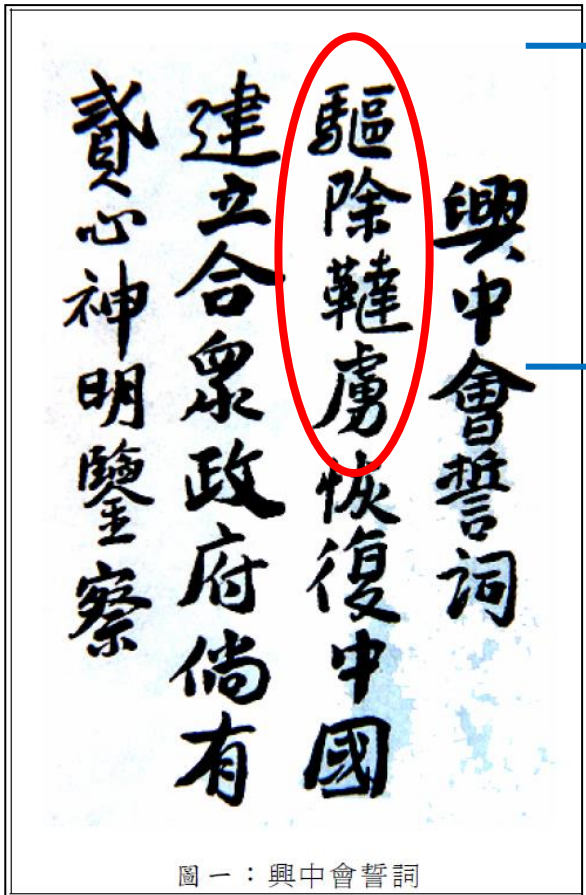 興中會誓詞
驅除韃虜恢復中國
建立合眾政府倘有
貳心神明鑒察
圖一：興中會誓詞